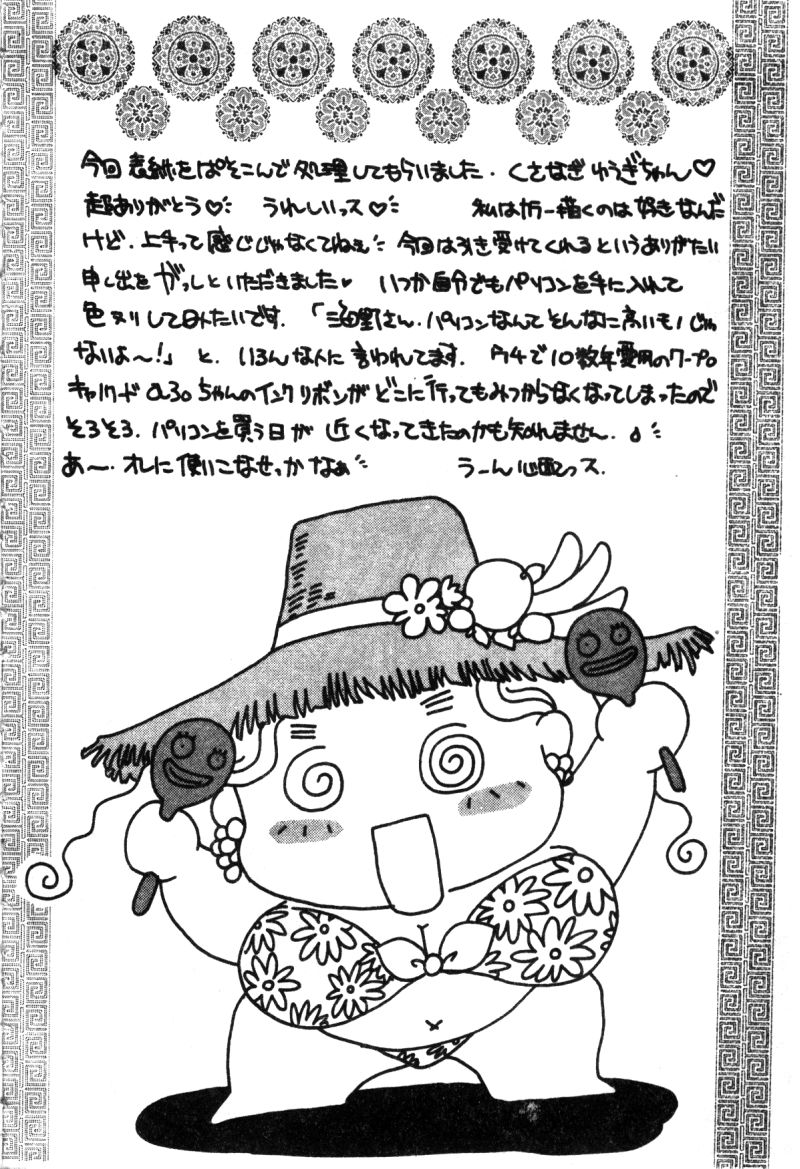 今回 表紙をぱそこんで処理してもらいました. くさなぎゆうぎちゃん♡
超ありがとう♡ うれしいっス♡ 私はカラー描くのは好きなんだ
けど. 上手って感じじゃなくてねぇ 今回は引き受けてくれるというありがたい
申し出を がっしといただきました♥ いつか自分でもパソコンを手に入れて
色ヌリしてみたいです. 「さん. パソコンなんてそんなに高いもんじゃ
ないよ〜!」 と. いろんな人に言われてます. ウチで10数年愛用のワープロ
キャノワード α30ちゃんのインクリボンが どこに行ってもみつからなくなってしまったので
そろそろ. パソコンを買う日が 近くなってきたのかも知れません. ♪
あ〜. オレに使いこなせっかなぁ うーん心配っス.